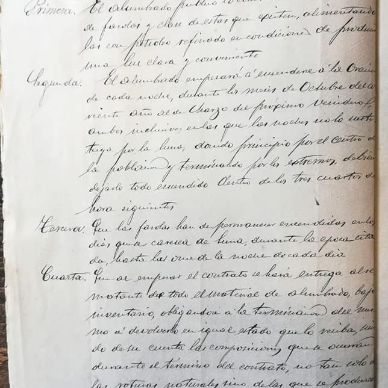 Primera. El alumbrado público
de faroles y clase de estas que existen, alimentando
las con petróleo refinado en condiciones de producir
una luz clara y conveniente
Segunda. El alumbrado empesará á encenderse á la Oracion
de cada noche, durante los meses de Octubre del co
rriente año al de Marzo del proximo venidero,
ambos inclusives en las que las noches no la
por la luna, dando principio por el Centro de
la poblacion y terminando por los extremos, debien
dejarlo todo encendido dentro de los tres cuartos de
hora siguientes
Tercera. Que las farolas han de permanecer encendidas en los
dias que caresca de luna, durante la epoca cita
da, hasta las once de la noche de cada dia
Cuarta. Que al empesar el contrato se hará entrega al re
matante de todo el material de alumbrado, bajo
inventario, obligandose á la terminacion del mis
mo á devolverlo en igual estado que lo reciba, sien
do de su cuenta las composiciones que se ocurran
durante el término del contrato, no tan solo de
las roturas naturales sino de las que se produzcan